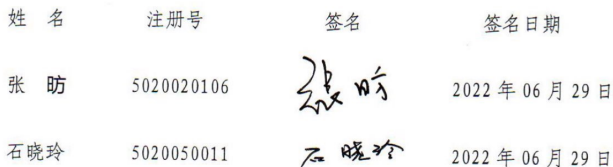 姓 名 注册号 签名 签名日期
张 昉 5020020106 张昉 2022 年 06 月 29 日
石晓玲 5020050011 石晓玲 2022 年 06 月 29 日